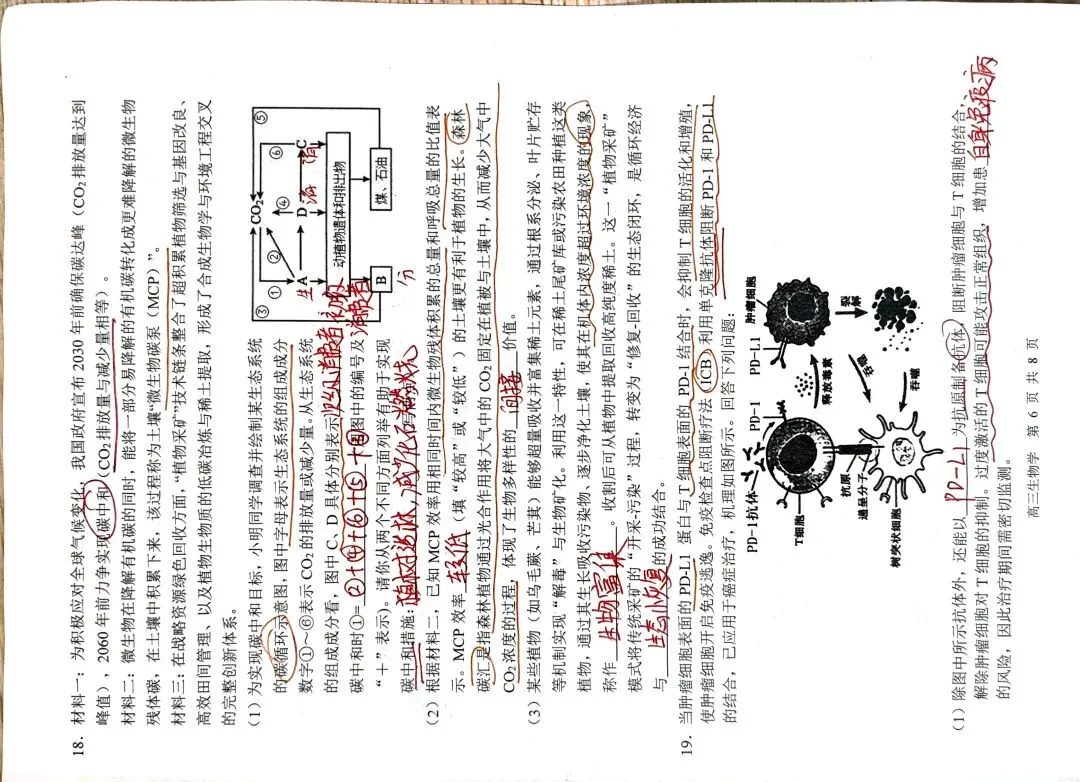 18. 材料一：为积极应对全球气候变化，我国政府宣布 2030 年前确保碳达峰（CO₂排放量达到
峰值），2060 年前力争实现碳中和（CO₂排放量与减少量相等）。
材料二：微生物在降解有机碳的同时，能将一部分易降解的有机碳转化成更难降解的微生物
残体碳，在土壤中积累下来，该过程称为土壤“微生物碳泵（MCP）”。
材料三：在战略资源绿色回收方面，“植物采矿”技术链条整合了超积累植物筛选与基因改良、
高效田间管理、以及植物生物质的低碳冶炼与稀土提取，形成了合成生物学与环境工程交叉
的完整创新体系。
（1）为实现碳中和目标，小明同学调查并绘制某生态系统
的碳循环示意图，图中字母表示生态系统的组成成分
数字①～⑥表示 CO₂的排放量或减少量。从生态系统
的组成成分看，图中 C、D 具体分别表示次级消费者、初级消费者
碳中和时①= ②+④+⑥+⑤+③ 用图中的编号及
“＋”表示）。请你从两个不同方面列举有助于实现
碳中和措施：植树造林，减少化石燃烧
③
①
②
CO₂
④
⑥
⑤
生 A
D 消
C 消
动植物遗体和排出物
B
分
煤、石油
（2）根据材料二，已知 MCP 效率用相同时间内微生物残体积累的总量和呼吸总量的比值表
示。MCP 效率 较低 （填“较高”或“较低”）的土壤更有利于植物的生长。森林
碳汇是指森林植物通过光合作用将大气中的 CO₂固定在植被与土壤中，从而减少大气中
CO₂浓度的过程，体现了生物多样性的 间接 价值。
（3）某些植物（如乌毛蕨、芒萁）能够超量吸收并富集稀土元素，通过根系分泌、叶片贮存
等机制实现“解毒”与生物矿化。利用这一特性，可在稀土尾矿库或污染农田种植这类
植物，通过其生长吸收污染物、逐步净化土壤，使其在机体内浓度超过环境浓度的现象，
称作 生物富集 。收割后可从植物中提取回收高纯度稀土。这一“植物采矿”
模式将传统采矿的“开采-污染”过程，转变为“修复-回收”的生态闭环，是循环经济
与 生态恢复 的成功结合。
19. 当肿瘤细胞表面的 PD-L1 蛋白与 T 细胞表面的 PD-1 结合时，会抑制 T 细胞的活化和增殖，
使肿瘤细胞开启免疫逃逸。免疫检查点阻断疗法（ICB）利用单克隆抗体阻断 PD-1 和 PD-L1
的结合，已应用于癌症治疗，机理如图所示。回答下列问题：
PD-1抗体
PD-1
PD-L1
肿瘤细胞
T细胞
释放毒素
裂解
抗原
递呈分子
吞噬
吞噬
树突状细胞
（1）除图中所示抗体外，还能以 PD-L1 为抗原制备抗体，阻断肿瘤细胞与 T 细胞的结合，
解除肿瘤细胞对 T 细胞的抑制。过度激活的 T 细胞可能攻击正常组织，增加患 自身免疫病
的风险，因此治疗期间需密切监测。
高三生物学 第 6 页 共 8 页